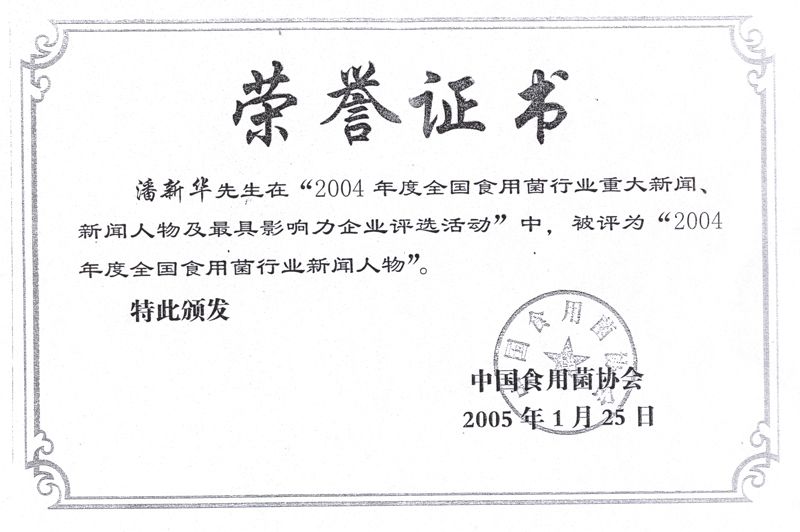 荣誉证书
潘新华先生在“2004 年度全国食用菌行业重大新闻、
新闻人物及最具影响力企业评选活动”中，被评为“2004
年度全国食用菌行业新闻人物”。
特此颁发
中国食用菌协会
中国食用菌协会
2005 年 1 月 25 日